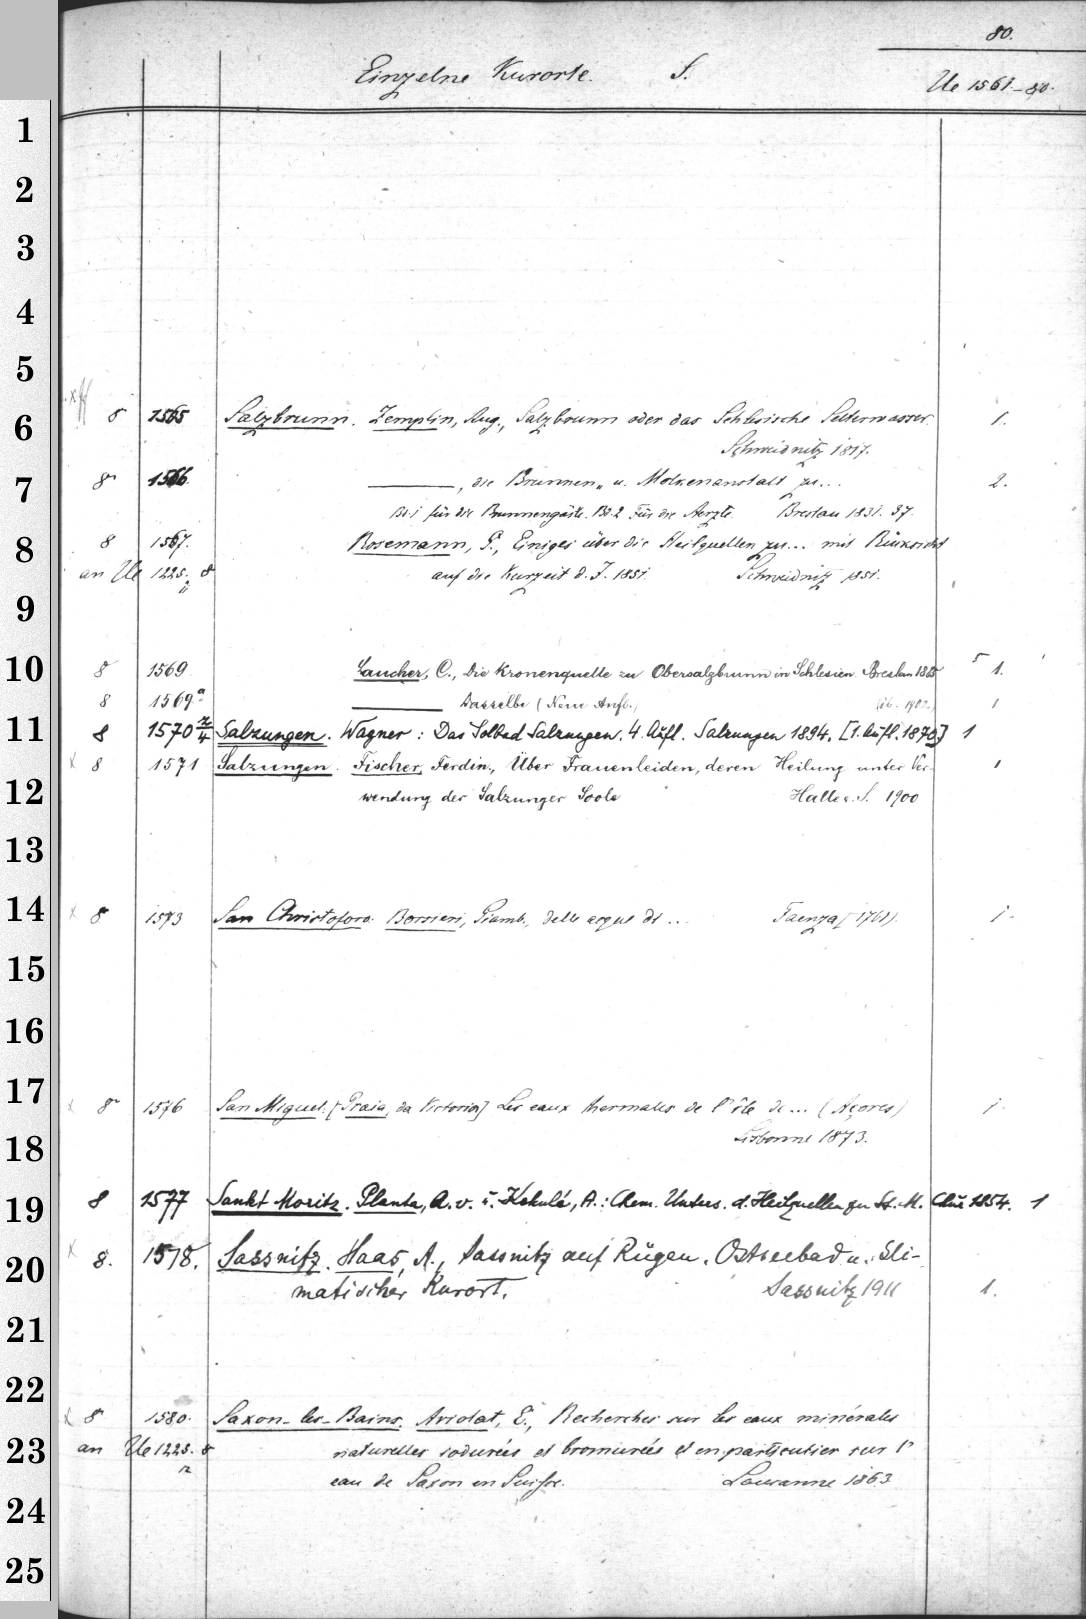 80.
Einzelne Kurorte. S. Ue 1561-80.
1
2
3
4
5
6
8 1565 Salzbrunn. Zemplin, Aug., Salzbrunn oder das Schlesische Selterwasser. 1.
Schweidnitz 1817.
7
8 1566 ———, die Brunnen- u. Molkenanstalt zu... 2.
Bd. 1 für die Brunnengäste. Bd. 2 Für die Aerzte. Breslau 1831. 37.
8
8 1567. Rosemann, G., Einiges über die Heilquellen zu... mit Rücksicht
an Ue 1225. 8 auf die Kurzeit d. J. 1851. Schweidnitz 1851.
9
10
8 1569 C., Die Kronenquelle zu Obersalzbrunn in Schlesien Breslau 1885 1.
8 1569a ——— Dasselbe (Neue Aufl.) (ib. 1902.) 1
11
8 1570 Salzungen. Wagner: Das Solbad Salzungen. 4. Aufl. Salzungen 1894. [1. Aufl. 1870] 1
x 8 1571 Salzungen. Fischer, Ferdin., Über Frauenleiden, deren Heilung unter Ver-
12
wendung der Salzunger Soole Halle a. S. 1900
13
14
x 8 1573 San Christoforo. Borsieri, Giamb., delle acque di ... Faenza [1761]. 1.
15
16
17
x 8 1576 San Miguel. [Praia, da Victoria] Les eaux thermales de l'île de ... (Açores) 1.
18
Lisbonne 1873.
19
8 1577 Sankt Moritz. Planta, A. v. u. Kekulé, A.: Chem. Unters. d. Heilquellen zu St. M. Chur 1854. 1
x 8. 1578. Sassnitz. Haas, A., Sassnitz auf Rügen. Ostseebad u. kli-
20
matischer Kurort. Sassnitz 1911 1.
21
22
x 8 1580. Saxon-les-Bains. Aviolat, E., Recherches sur les eaux minérales
23
an Ue 1225. 8 naturelles iodurées et bromurées et en particulier sur l'
eau de Saxon en Suisse. Lausanne 1863
24
25